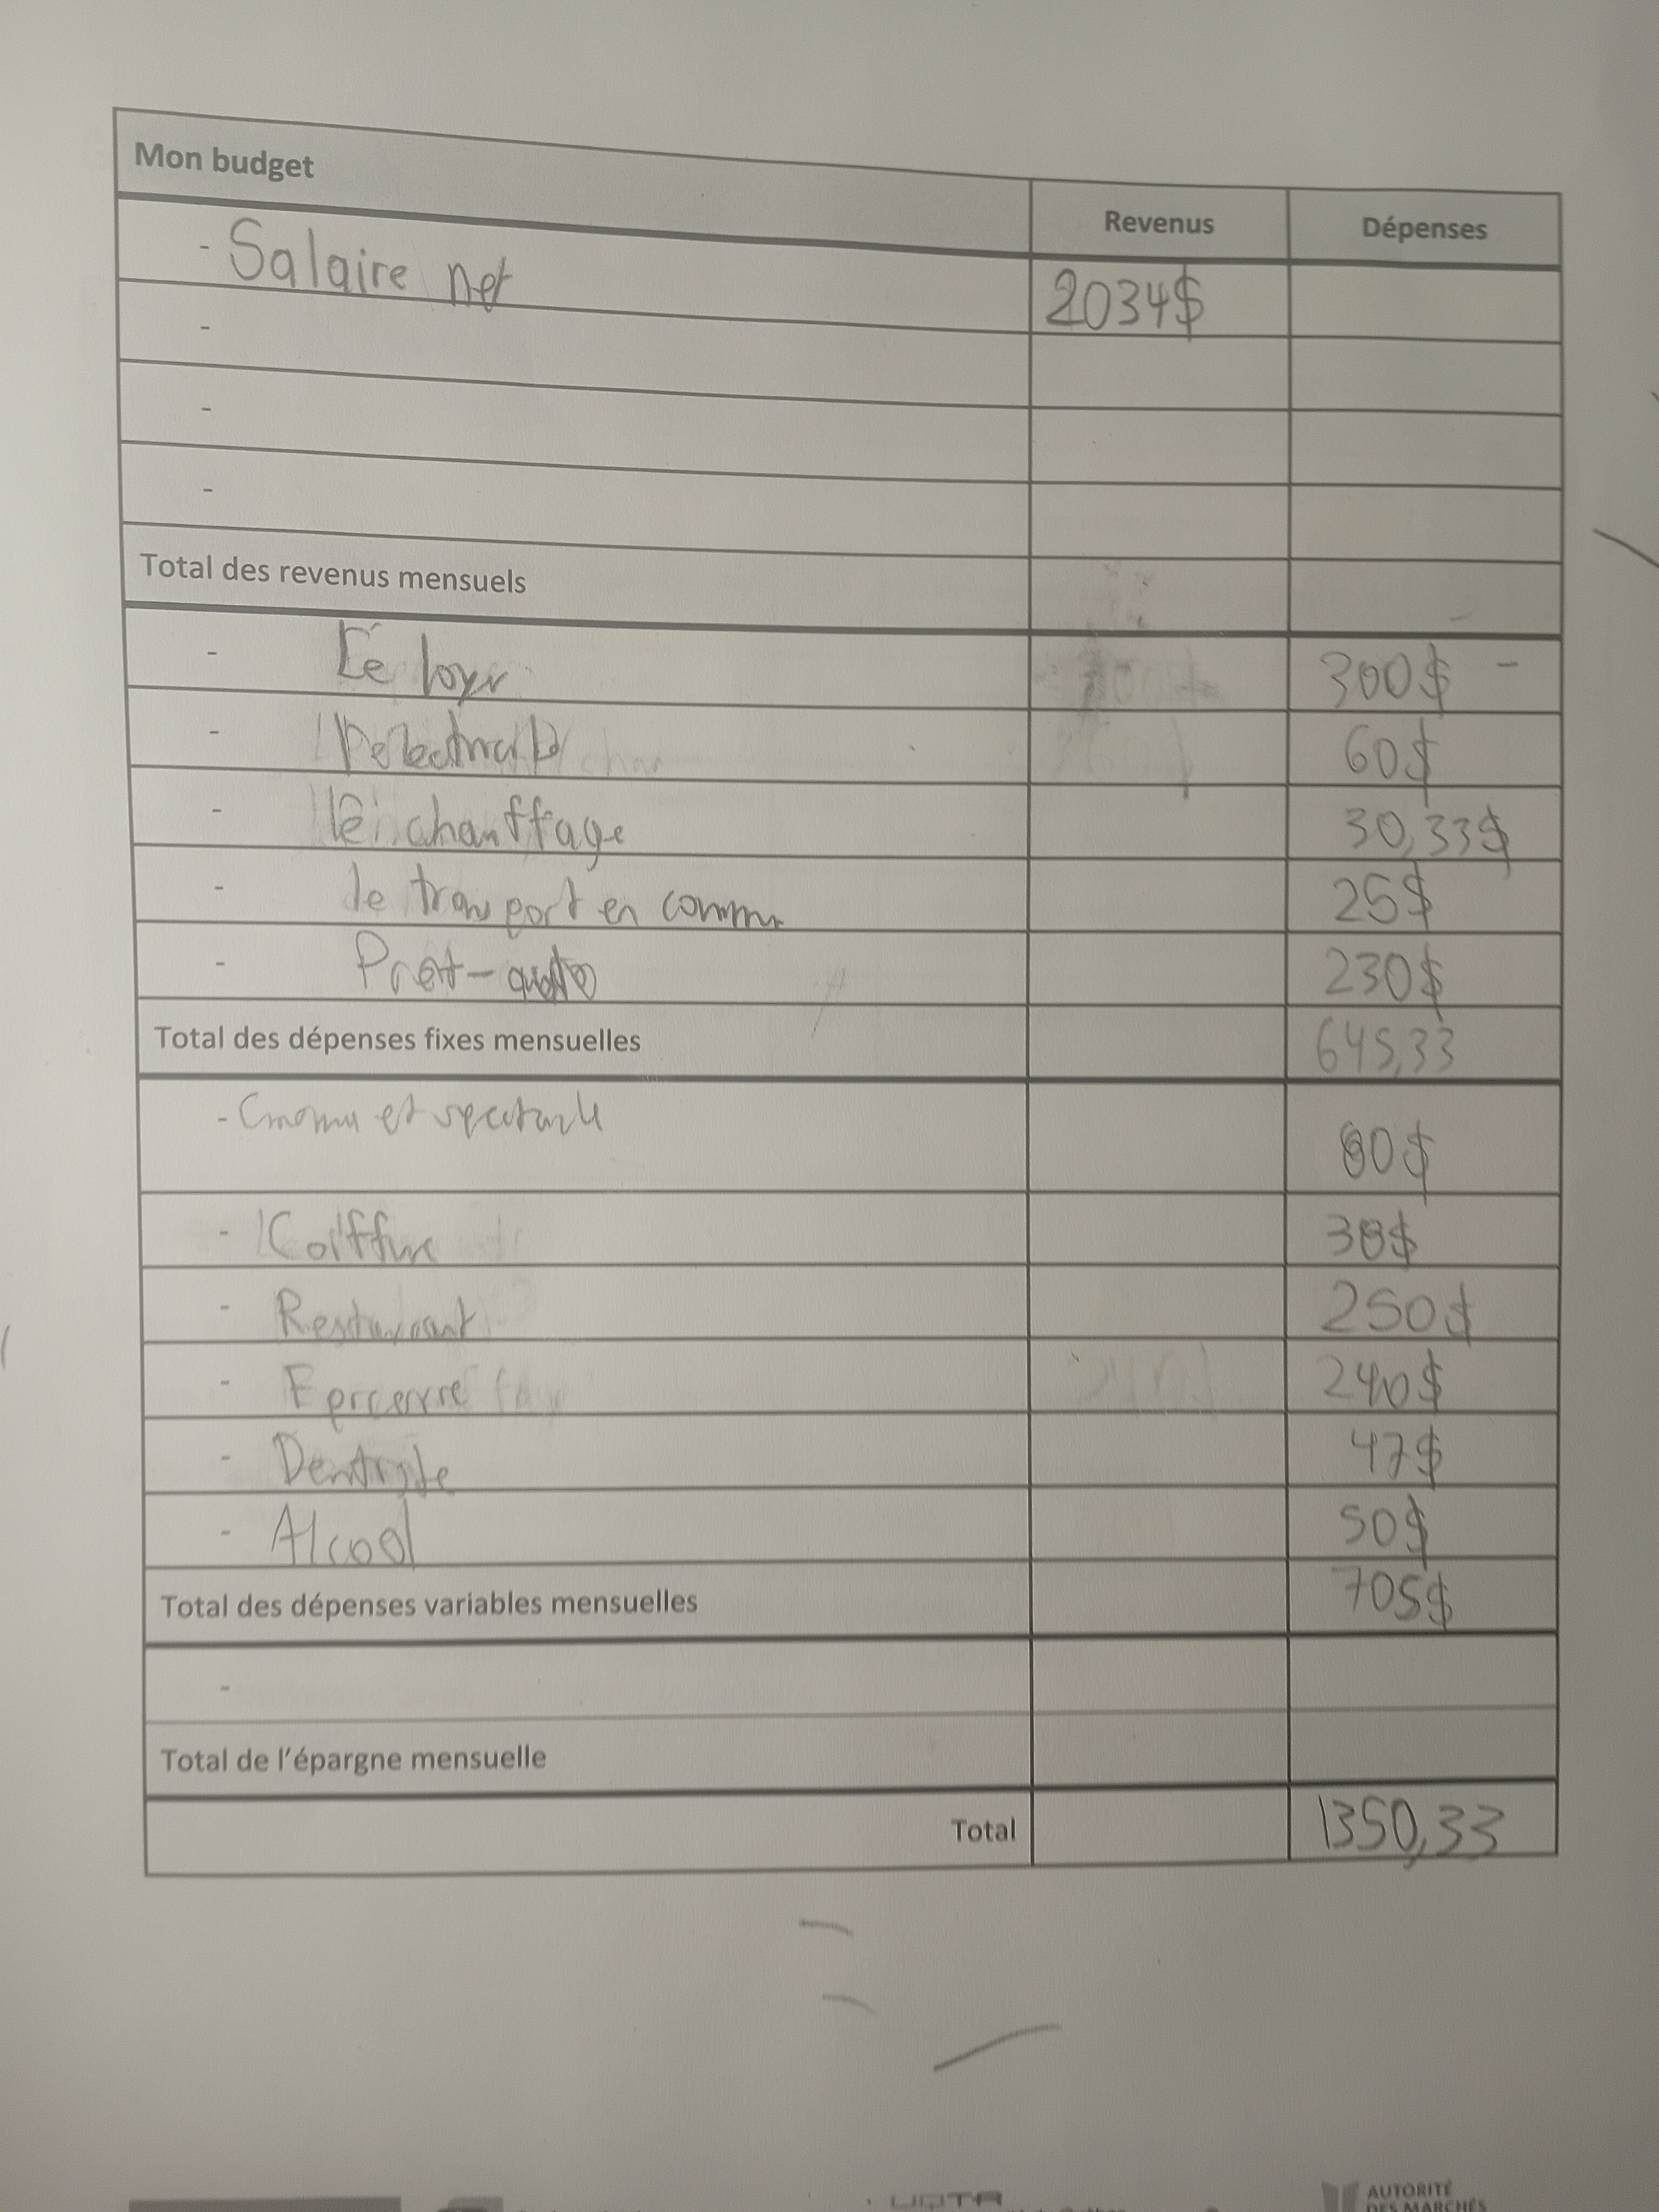 Mon budget Revenus Dépenses
- Salaire net 2034$
-
-
-
Total des revenus mensuels
- Le loyr 300$ -
- 60$
- chauffage 30,33$
- le transport en commu 25$
- Pret-auto 230$
Total des dépenses fixes mensuelles 645,33
- et 80$
- Coiffure 38$
- Restaurant 250$
- 240$
- Dentiste 47$
- Alcool 50$
Total des dépenses variables mensuelles 705$
-
Total de l'épargne mensuelle
Total 1350,33
AUTORITÉ
DES MARCHÉS